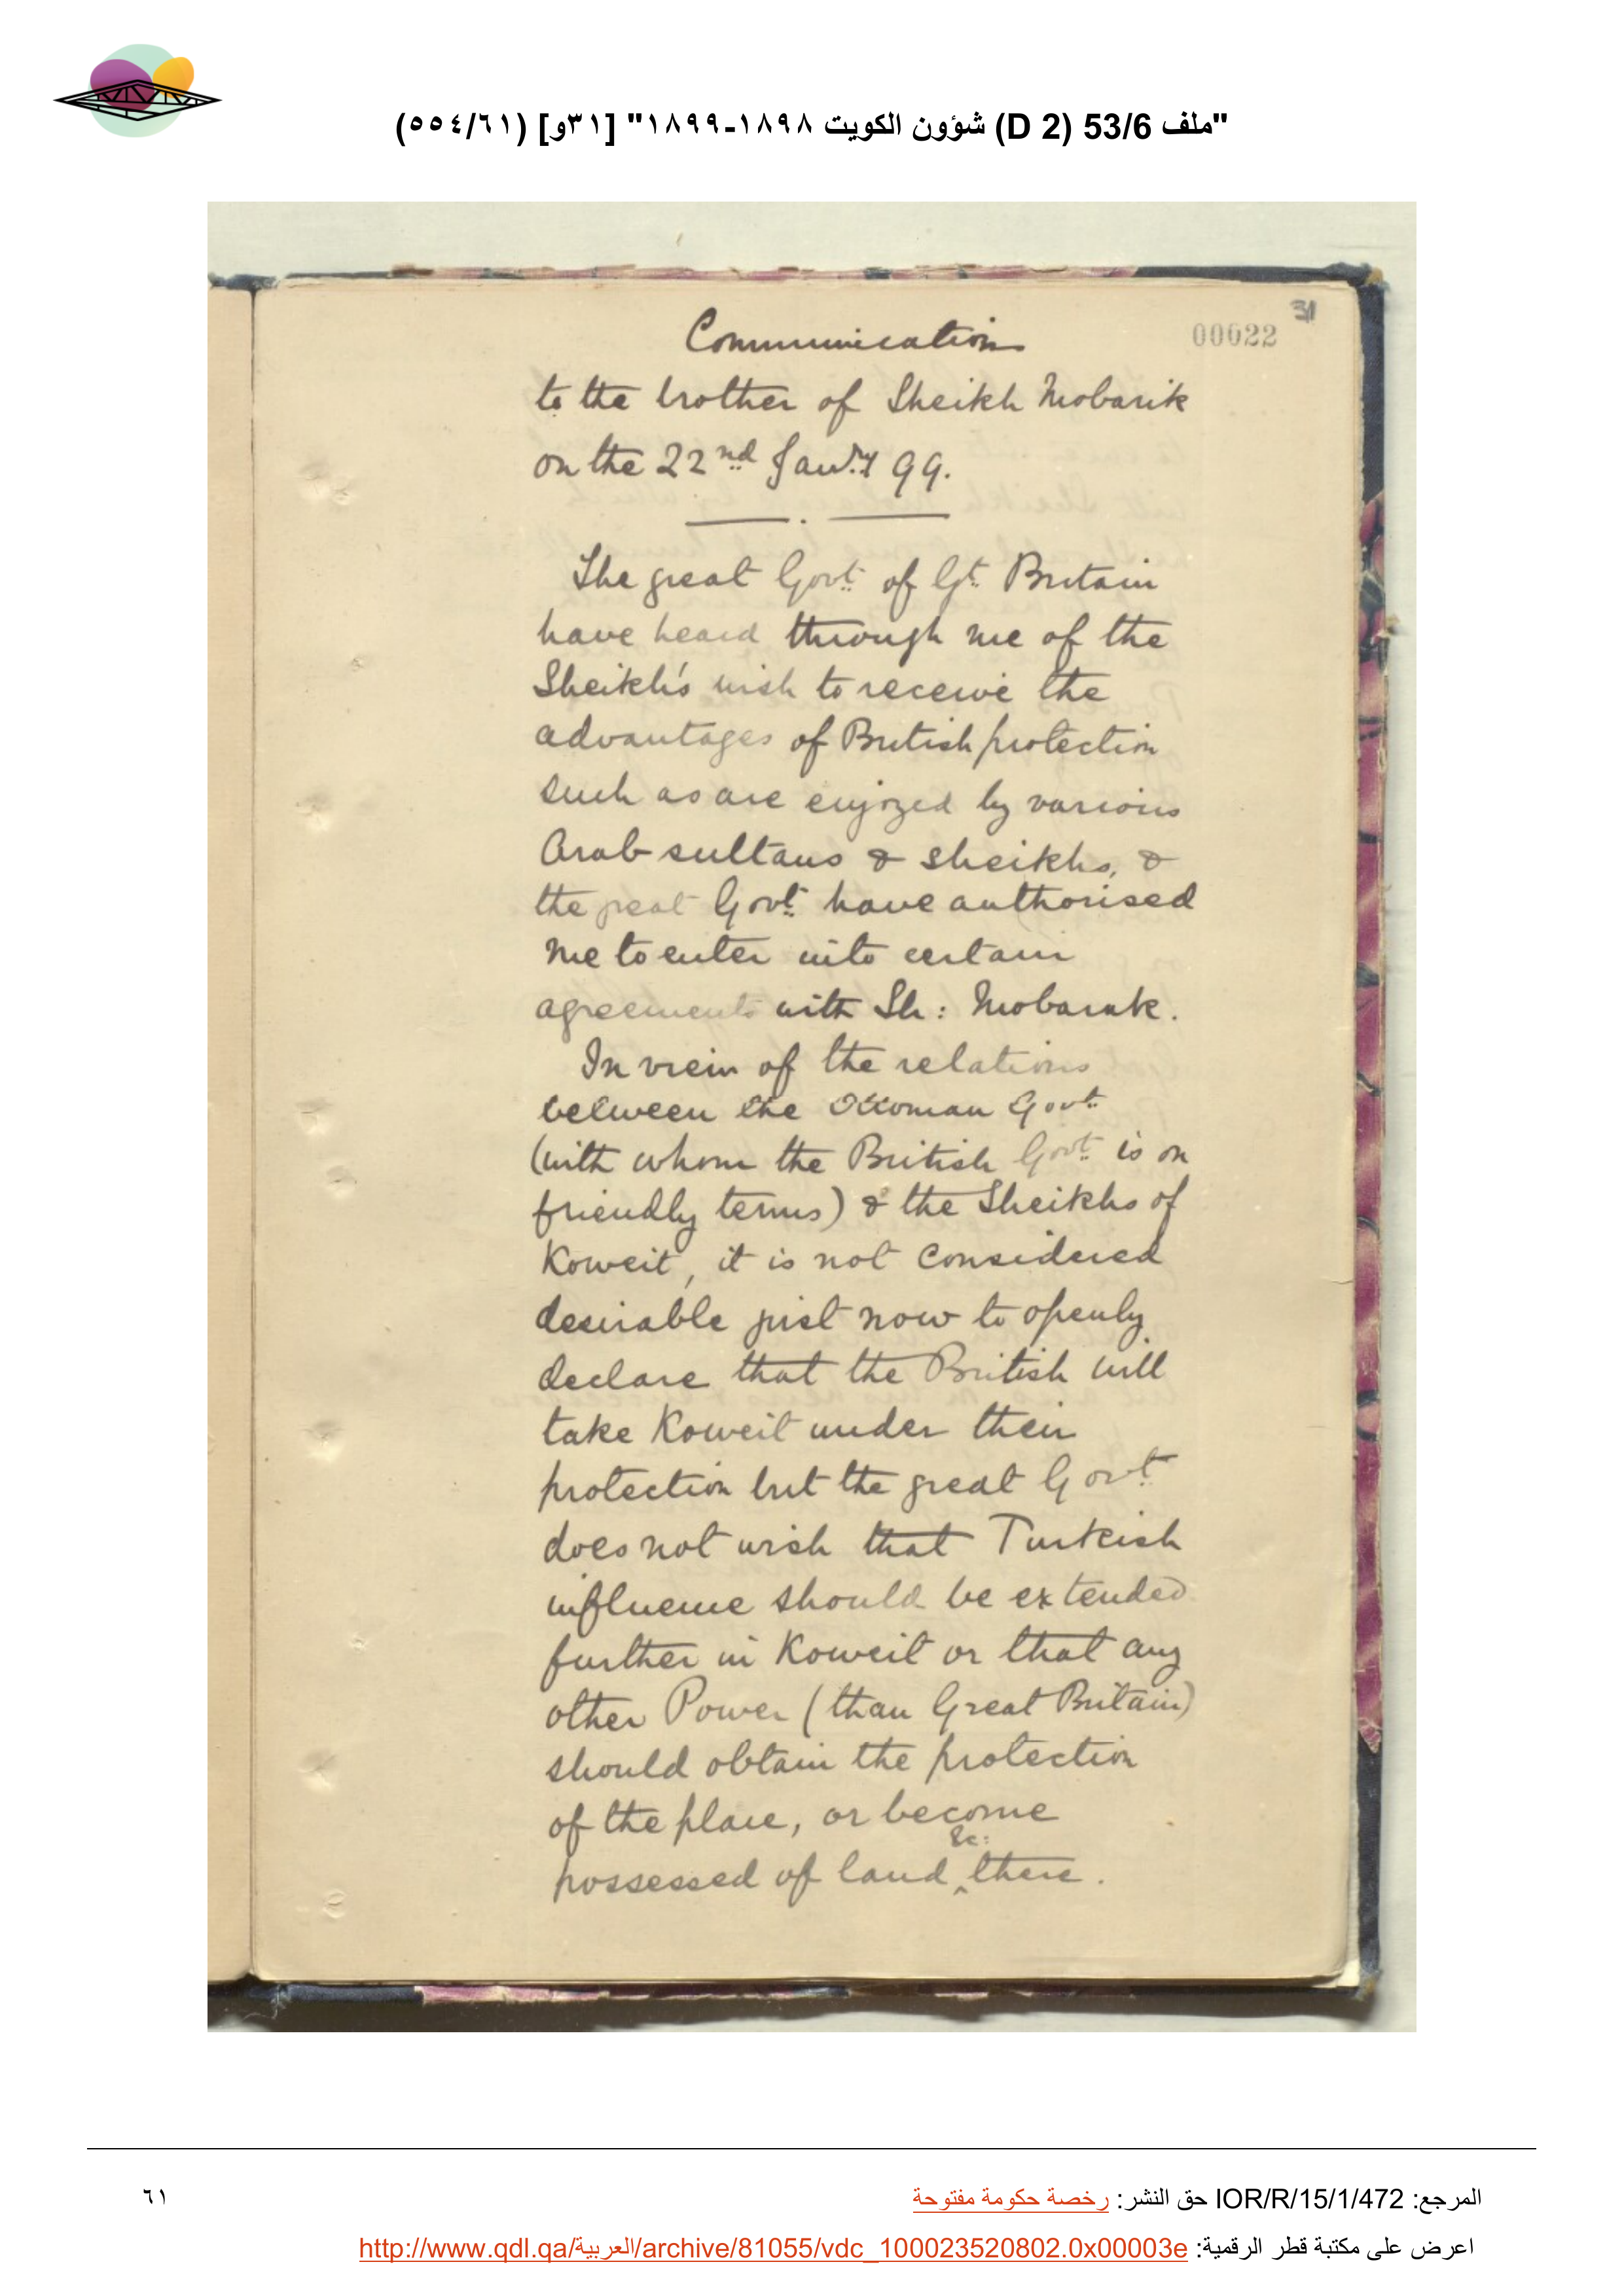 "ملف 53/6 (D 2) شؤون الكويت ١٨٩٨-١٨٩٩" [٣١و] (٥٥٤/٦١)
31
00022
Communication
to the brother of Sheikh Mobarik
on the 22nd Janry 99.
The great Govt. of Gt. Britain
have heard through me of the
Sheikh's wish to receive the
advantages of British protection
such as are enjoyed by various
Arab sultans & sheikhs, &
the great Govt. have authorised
me to enter into certain
agreements with Sh: Mobarak.
In view of the relations
between the Ottoman Govt.
(with whom the British Govt. is on
friendly terms) & the Sheikhs of
Koweit, it is not considered
desirable just now to openly
declare that the British will
take Koweit under their
protection but the great Govt.
does not wish that Turkish
influence should be extended
further in Koweit or that any
other Power (than Great Britain)
should obtain the protection
of the place, or become
possessed of land &c: there.
المرجع: IOR/R/15/1/472 حق النشر: رخصة حكومة مفتوحة
٦١
اعرض على مكتبة قطر الرقمية: http://www.qdl.qa/العربية/archive/81055/vdc_100023520802.0x00003e